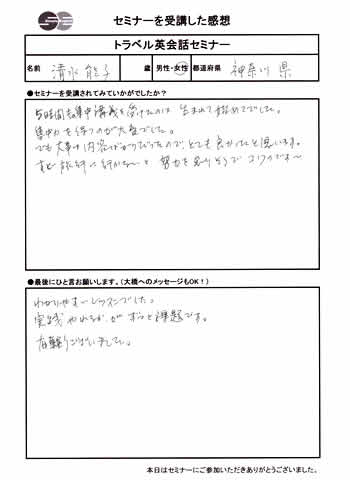 セミナーを受講した感想
トラベル英会話セミナー
名前 清水 能子 歳 男性・女性 都道府県 神奈川 県
●セミナーを受講されてみていかがでしたか？
5時間も集中講義を受けたのは 生まれて始めてでした。
集中力を保つのが大変でした。
でも大事な内容ばかりだったので、とても良かったと思います。
旅行に行かないと 努力を
●最後にひと言お願いします。（大橋へのメッセージもOK！）
わかりやすいレッスンでした。
実践やれるか、が ずっと課題です。
有難うございました。
本日はセミナーにご参加いただきありがとうございました。